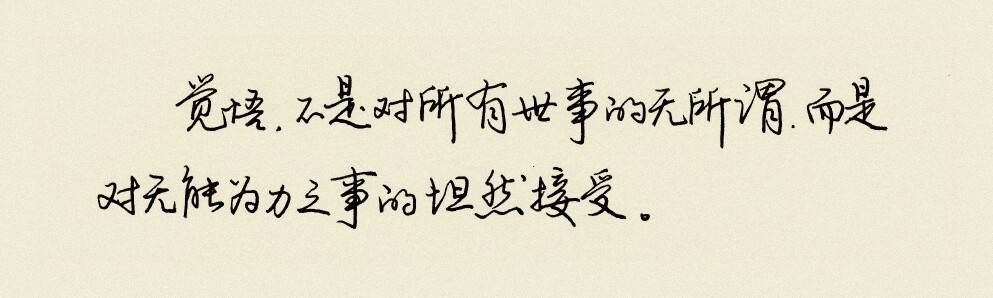 觉悟,不是对所有世事的无所谓,而是
对无能为力之事的坦然接受。